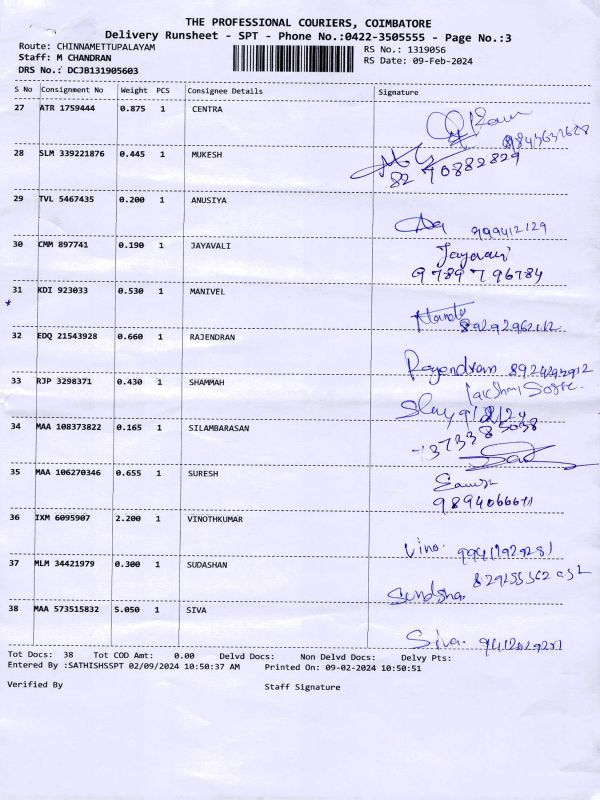 THE PROFESSIONAL COURIERS, COIMBATORE
Delivery Runsheet - SPT - Phone No.:0422-3505555 - Page No.:3
Route: CHINNAMETTUPALAYAM
RS No.: 1319056
Staff: M CHANDRAN
RS Date: 09-Feb-2024
DRS No.: DCJB131905603
S No Consignment No Weight PCS Consignee Details Signature
27 ATR 1759444 0.875 1 CENTRA
28 SLM 339221876 0.445 1 MUKESH
82 70882829
29 TVL 5467435 0.200 1 ANUSIYA
999412129
30 CMM 897741 0.190 1 JAYAVALI
9789796784
31 KDI 923033 0.530 1 MANIVEL
*
32 EDQ 21543928 0.660 1 RAJENDRAN
Rajendran
33 RJP 3298371 0.430 1 SHAMMAH
34 MAA 108373822 0.165 1 SILAMBARASAN
35 MAA 106270346 0.655 1 SURESH
36 IXM 6095907 2.200 1 VINOTHKUMAR
Vino.
37 MLM 34421979 0.300 1 SUDASHAN
38 MAA 573515832 5.050 1 SIVA
Siva.
Tot Docs: 38 Tot COD Amt: 0.00 Delvd Docs: Non Delvd Docs: Delvy Pts:
Entered By :SATHISHSSPT 02/09/2024 10:50:37 AM Printed On: 09-02-2024 10:50:51
Verified By Staff Signature